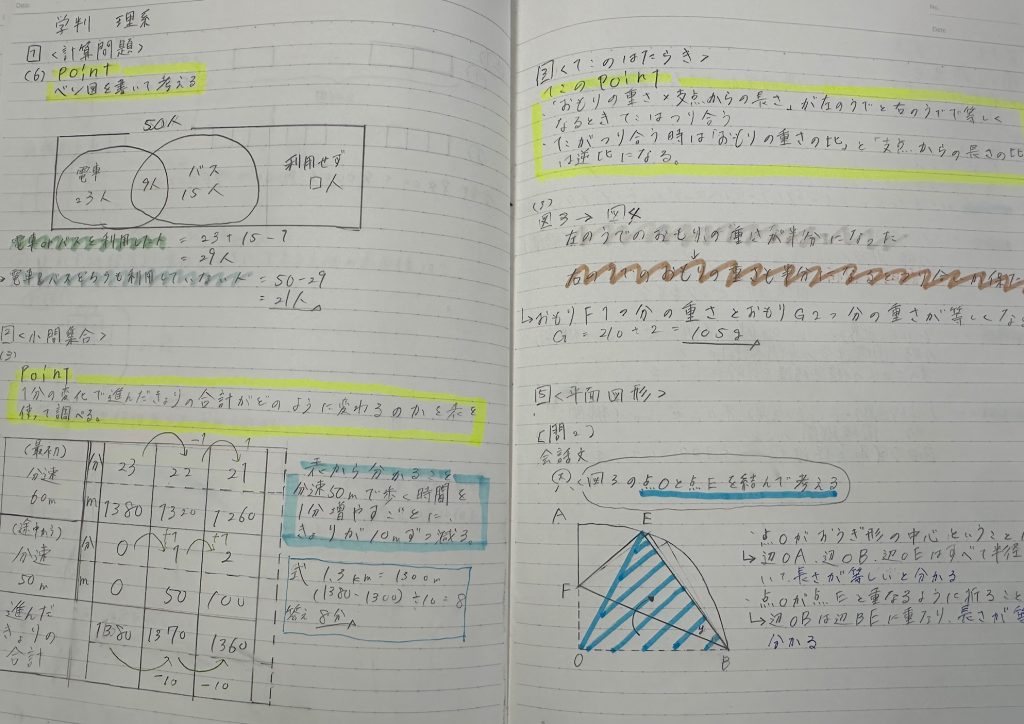 学判 理系
1 <計算問題>
(6) Point
ベン図を書いて考える
50人
電車
23人
9人
バス
15人
利用せず
□人
電車かバスを利用した人 = 23 + 15 - 9
= 29人
電車もバスもどちらも利用していない人 = 50 - 29
= 21人
2 <小問集合>
(3)
Point
1分の変化で進んだきょりの合計がどのように変わるのかを表を
使って調べる。
-1 -1
(最初) 分 23 22 21
分速
60m m 1380 1320 1260
+1 +1
(途中から) 分 0 1 2
分速
50m m 0 50 100
進んだ
きょりの
合計
1380 1370 1360
-10 -10
表から分かること
分速50mで歩く時間を
1分増やすごとに、
きょりが10mずつ減る。
式 1.3km = 1300m
(1380-1300) ÷10 = 8
答え 8分
3 <てこのはたらき>
てこの Point
・「おもりの重さ×支点からの長さ」が左のうでと右のうでで等しく
なるとき てこはつり合う
・てこがつり合う時は「おもりの重さの比」と「支点からの長さの比
は逆比になる。
図3 → 図4
左のうでのおもりの重さが半分になった
↓
右のうでのおもりの重さも半分になる
↳おもりF1つ分の重さとおもりG2つ分の重さが等しくな
G = 210 ÷ 2 = 105g
5 <平面図形>
(問2)
会話文
図3の点Oと点Eを結んで考える
A
E
F
O
B
・点Oがおうぎ形の中心ということ
↳辺OA、辺OB、辺OEはすべて半径
いて、長さが等しいと分かる
・点Oが点Eと重なるように折ること
↳辺OBは辺BEに重なり、長さが等
分かる